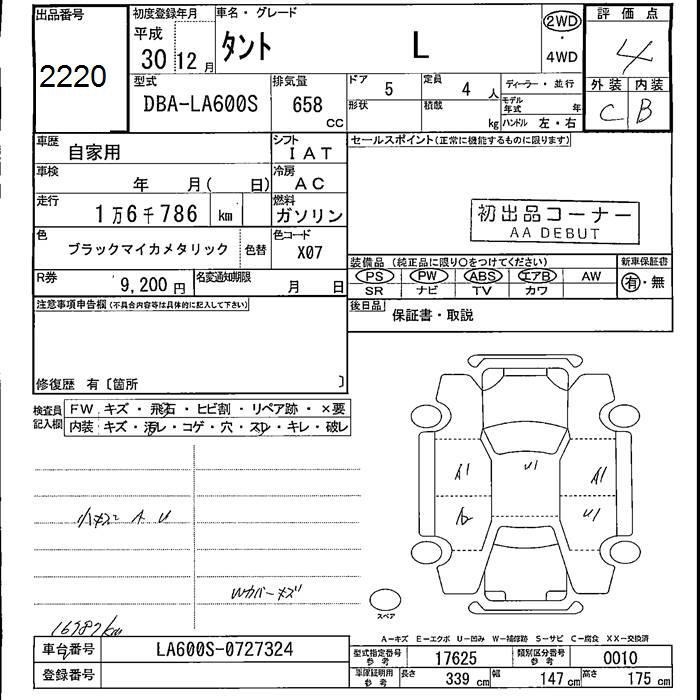 出品番号
2220
初度登録年月
平成
30年 12月
車名・グレード
タント L
2WD
・
4WD
評価点
4
外装 内装
C B
型式
DBA-LA600S
排気量
658 cc
ドア 5
定員 4 人
形状
積載 kg
ディーラー・並行
モデル年式 年
ハンドル 左・右
車歴
自家用
シフト
IAT
車検
年 月( 日)
冷房
AC
走行
1万6千786 km
燃料
ガソリン
色
ブラックマイカメタリック
色替
色コード
X07
R券
9,200円
名変通知期限
月 日
セールスポイント(正常に機能するものに限ります)
初出品コーナー
AA DEBUT
装備品(純正品に限り○をつけてください)
PS PW ABS エアB AW
SR ナビ TV カワ
新車保証書
有・無
後日品
保証書・取説
注意事項申告欄(不具合内容等は具体的に記入して下さい)
修復歴 有〔箇所 〕
検査員記入欄
FW キズ・飛石・ヒビ割・リペア跡・×要
内装 キズ・汚レ・コゲ・穴・スレ・キレ・破レ
小キズ A U
Wカバーキズ
A1
U1
A1
U1
スペア
16787km
A-キズ E-エクボ U-凹み W-補修跡 S-サビ C-腐食 XX-交換済
車台番号
LA600S-0727324
登録番号
型式指定番号
参考
17625
類別区分番号
参考
0010
車庫証明用
参考
長さ 339 cm
幅 147 cm
高さ 175 cm